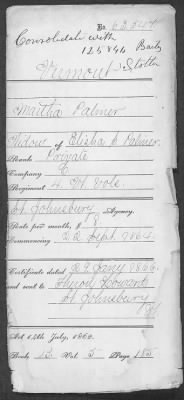 No. 62.547
Consolidate with
125846
Vermont
Martha Palmer
Widow of Elisha Palmer
Rank Private
Company E
Regiment 4. Vt. Vols.
St Johnsbury Agency.
Rate per month, $ 8
Commencing 22 Sept. 1864
Certificate dated 29 Jany 1866
and sent to
St Johnsbury
Vt
Act 14th July, 1862.
Book B Vol. 5 Page 185